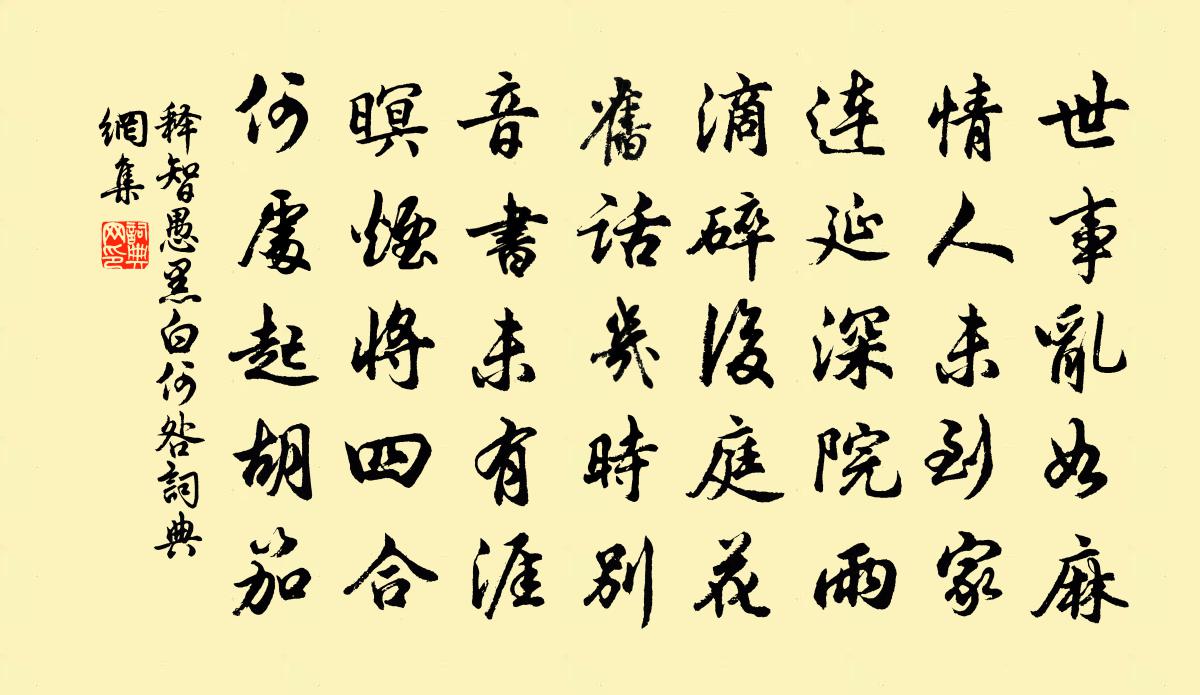 世事亂如麻
情人未到家
連延深院雨
滴碎後庭花
舊話幾時別
音書未有涯
暝煙將四合
何處起胡笳
释智愚黑白何咎詞典
網集
詞典
网印